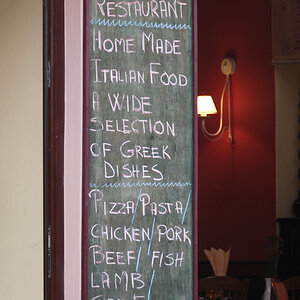 RESTAURANT
HOME MADE
ITALIAN FOOD
A WIDE
SELECTION
OF GREEK
DISHES
PIZZA/PASTA/
CHICKEN/PORK
BEEF/FISH
LAMB/